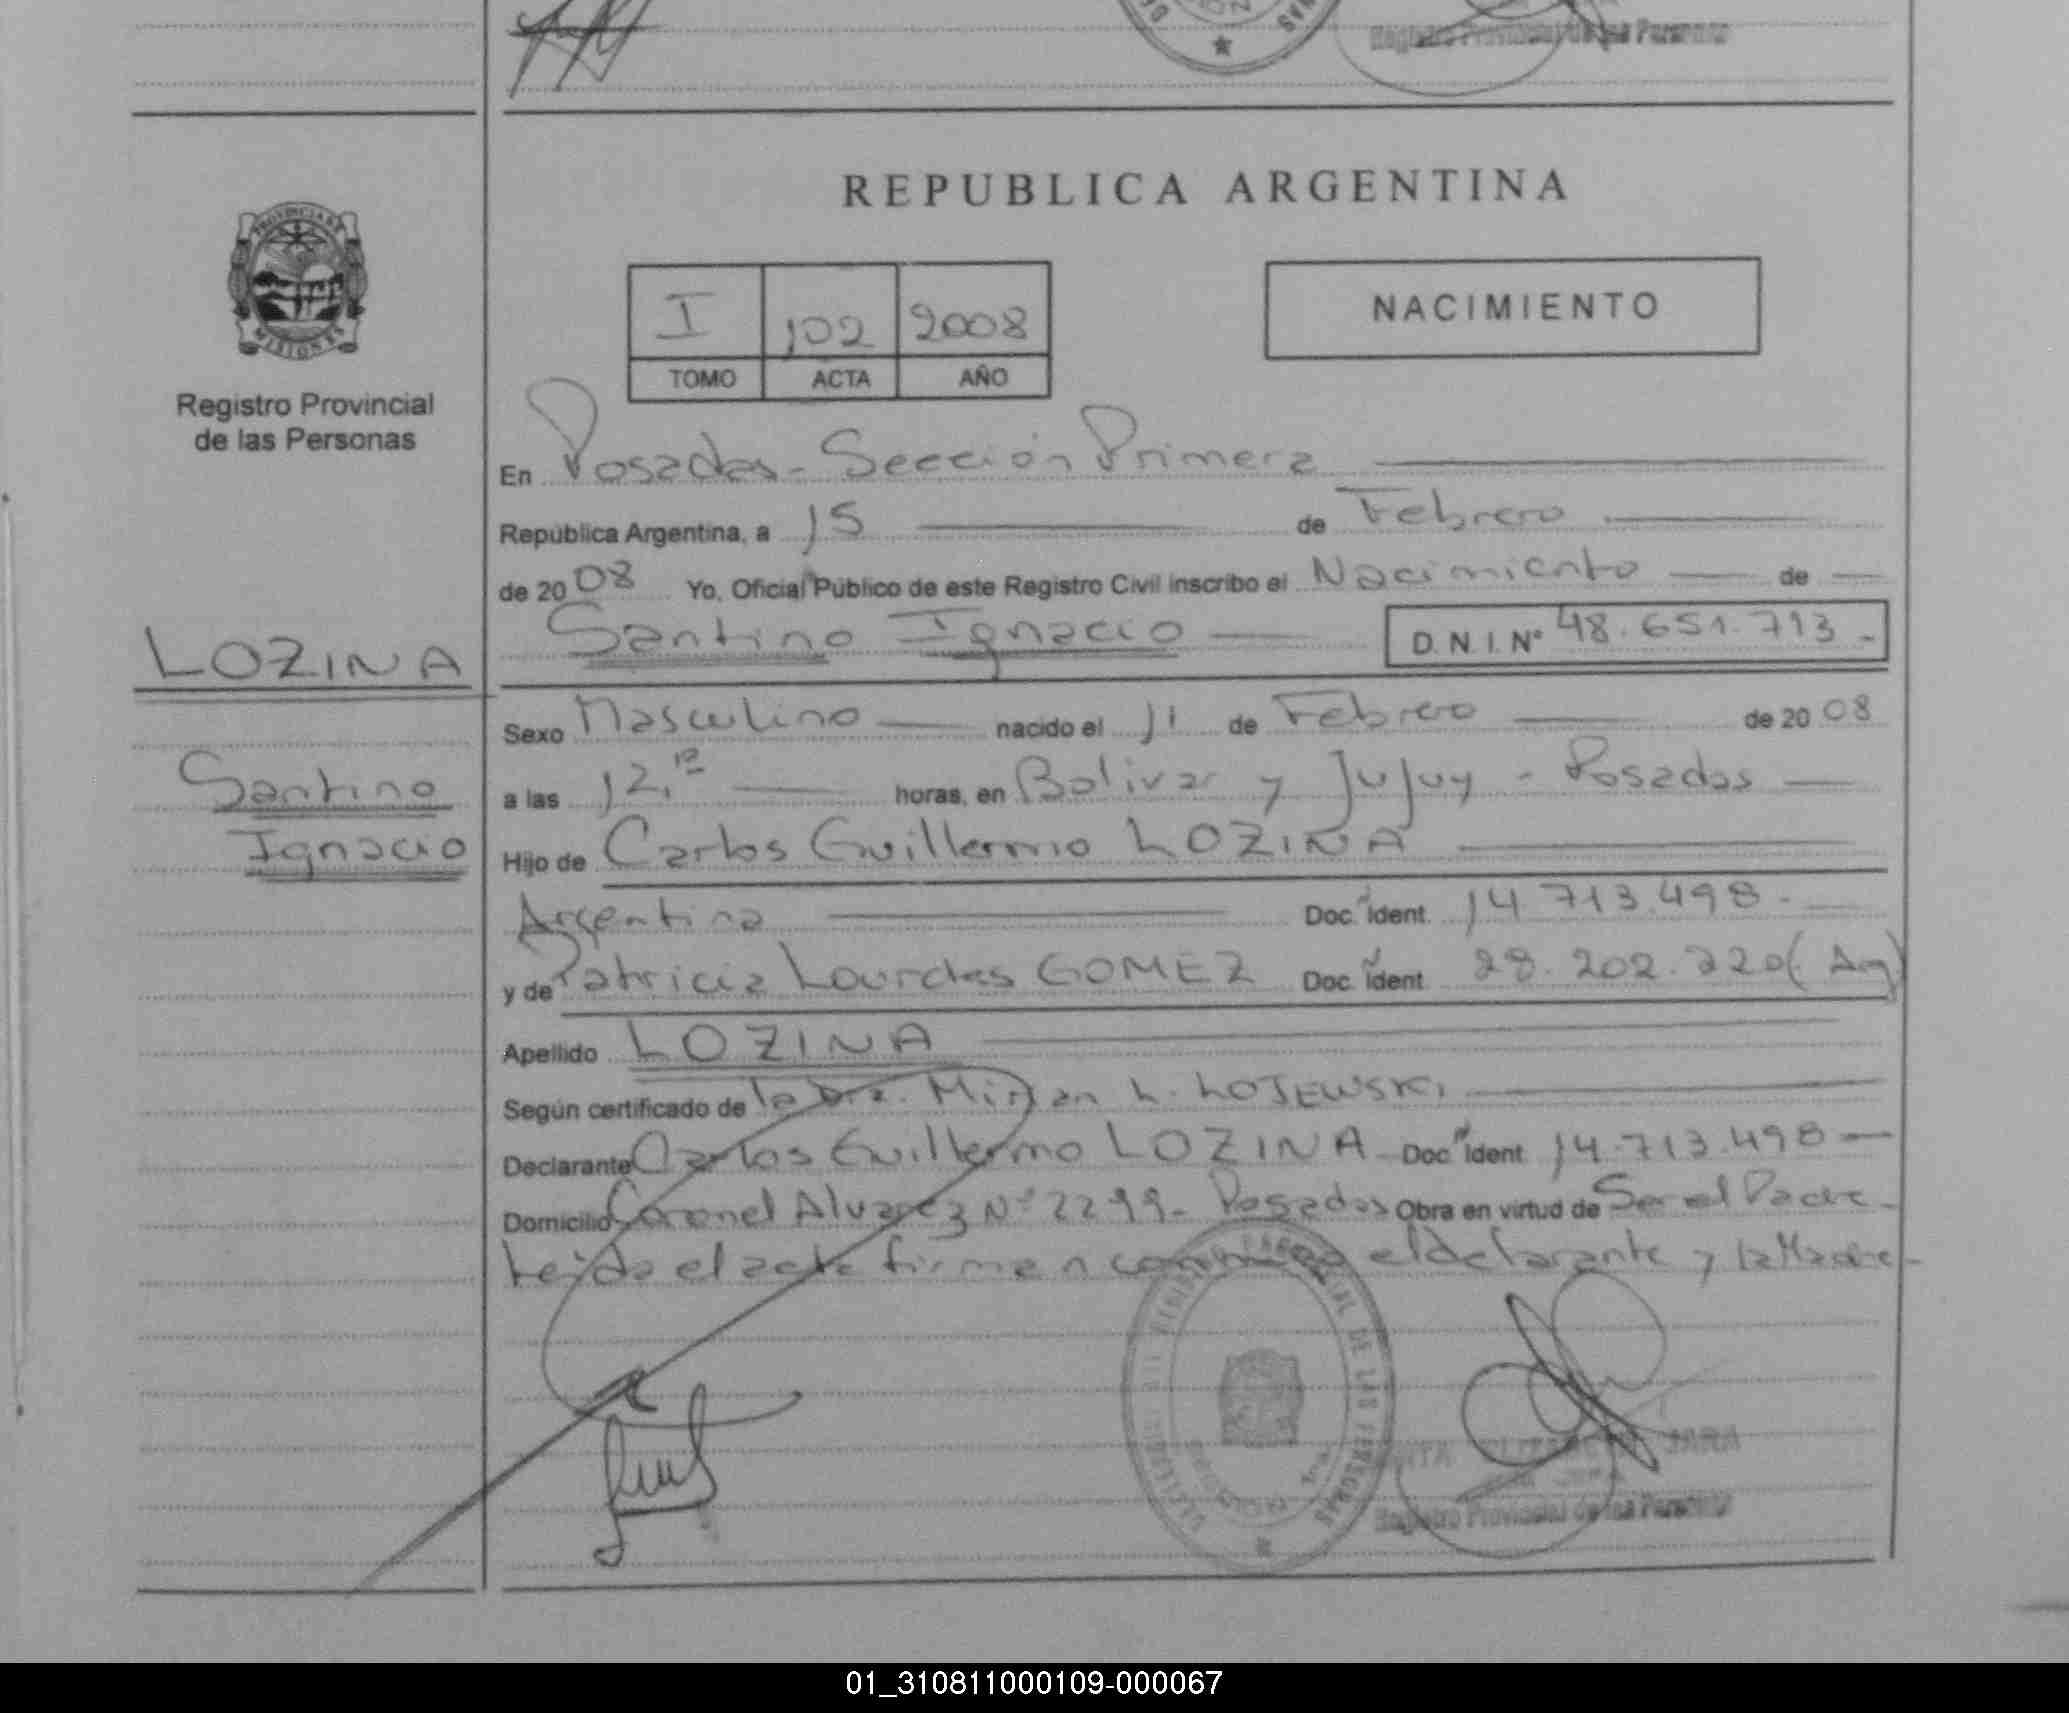 Registro Provincial de las Personas
REPUBLICA ARGENTINA
PROVINCIA DE
MISIONES
Registro Provincial
de las Personas
I 102 2008
TOMO ACTA AÑO
NACIMIENTO
En Posadas - Sección Primera
República Argentina, a 15 de Febrero
de 2008 Yo, Oficial Público de este Registro Civil inscribo el Nacimiento de
Santino Ignacio D.N.I. Nº 48.651.713
LOZINA
Santino
Ignacio
Sexo Masculino nacido el 11 de Febrero de 2008
a las 12, horas, en Bolivar y Jujuy - Posadas
Hijo de Carlos Guillermo LOZINA
Argentina Doc. Ident. 14.713.498.
y de Patricia Lourdes GOMEZ Doc. Ident. 28.202.220 (Arg)
Apellido LOZINA
Según certificado de la Dra. Mirian L. LOJEWSKI
Declarante Carlos Guillermo LOZINA Doc. Ident 14.713.498
Domicilio Coronel Alvarez Nº 2299 - Posadas Obra en virtud de Ser el Padre
Leida el acta firman conmigo el declarante y la Madre
Registro Provincial de las Personas
01_310811000109-000067